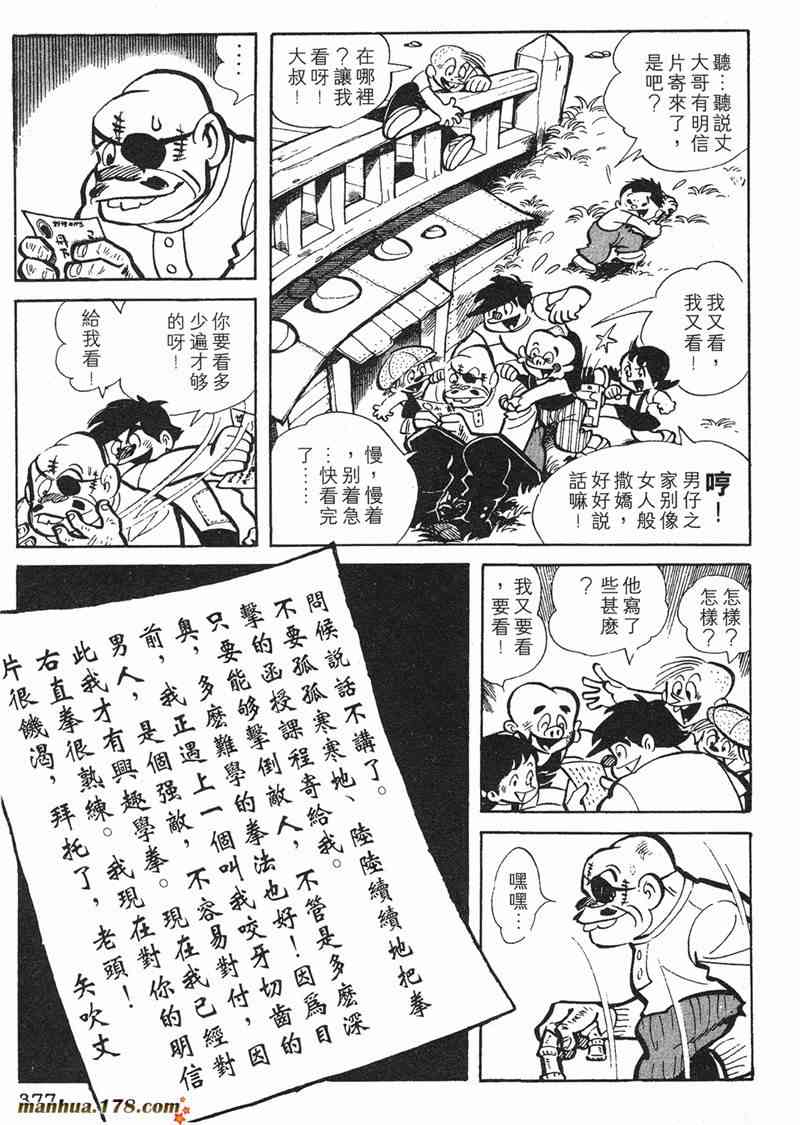 聽…聽說丈
大哥有明信
片寄來了，
是吧？
在哪裡
？讓我
看呀！
大叔！
我又看，
我又看！
哼！
男仔之
家別像
女人般
撒嬌，
好好說
話嘛！
慢，慢着
，別着急
…快看完
了……
……
你要看多
少遍才够
的呀！
給我看！
怎樣？
怎樣？
他寫了
些甚麼
？
我又要看
，要看！
嘿
嘿…
問候說話不講了。
不要孤孤寒寒地、陸陸續續地把拳
擊的函授課程寄給我。
只要能够擊倒敵人，不管是多麼深
奧，多麼難學的拳法也好！因爲目
前，我正遇上一個叫我咬牙切齒的
男人，是個强敵，不容易對付，因
此我才有興趣學拳。現在我已經對
右直拳很熟練。我現在對你的明信
片很饑渴，拜托了，老頭！
矢吹丈
377
manhua.178.com